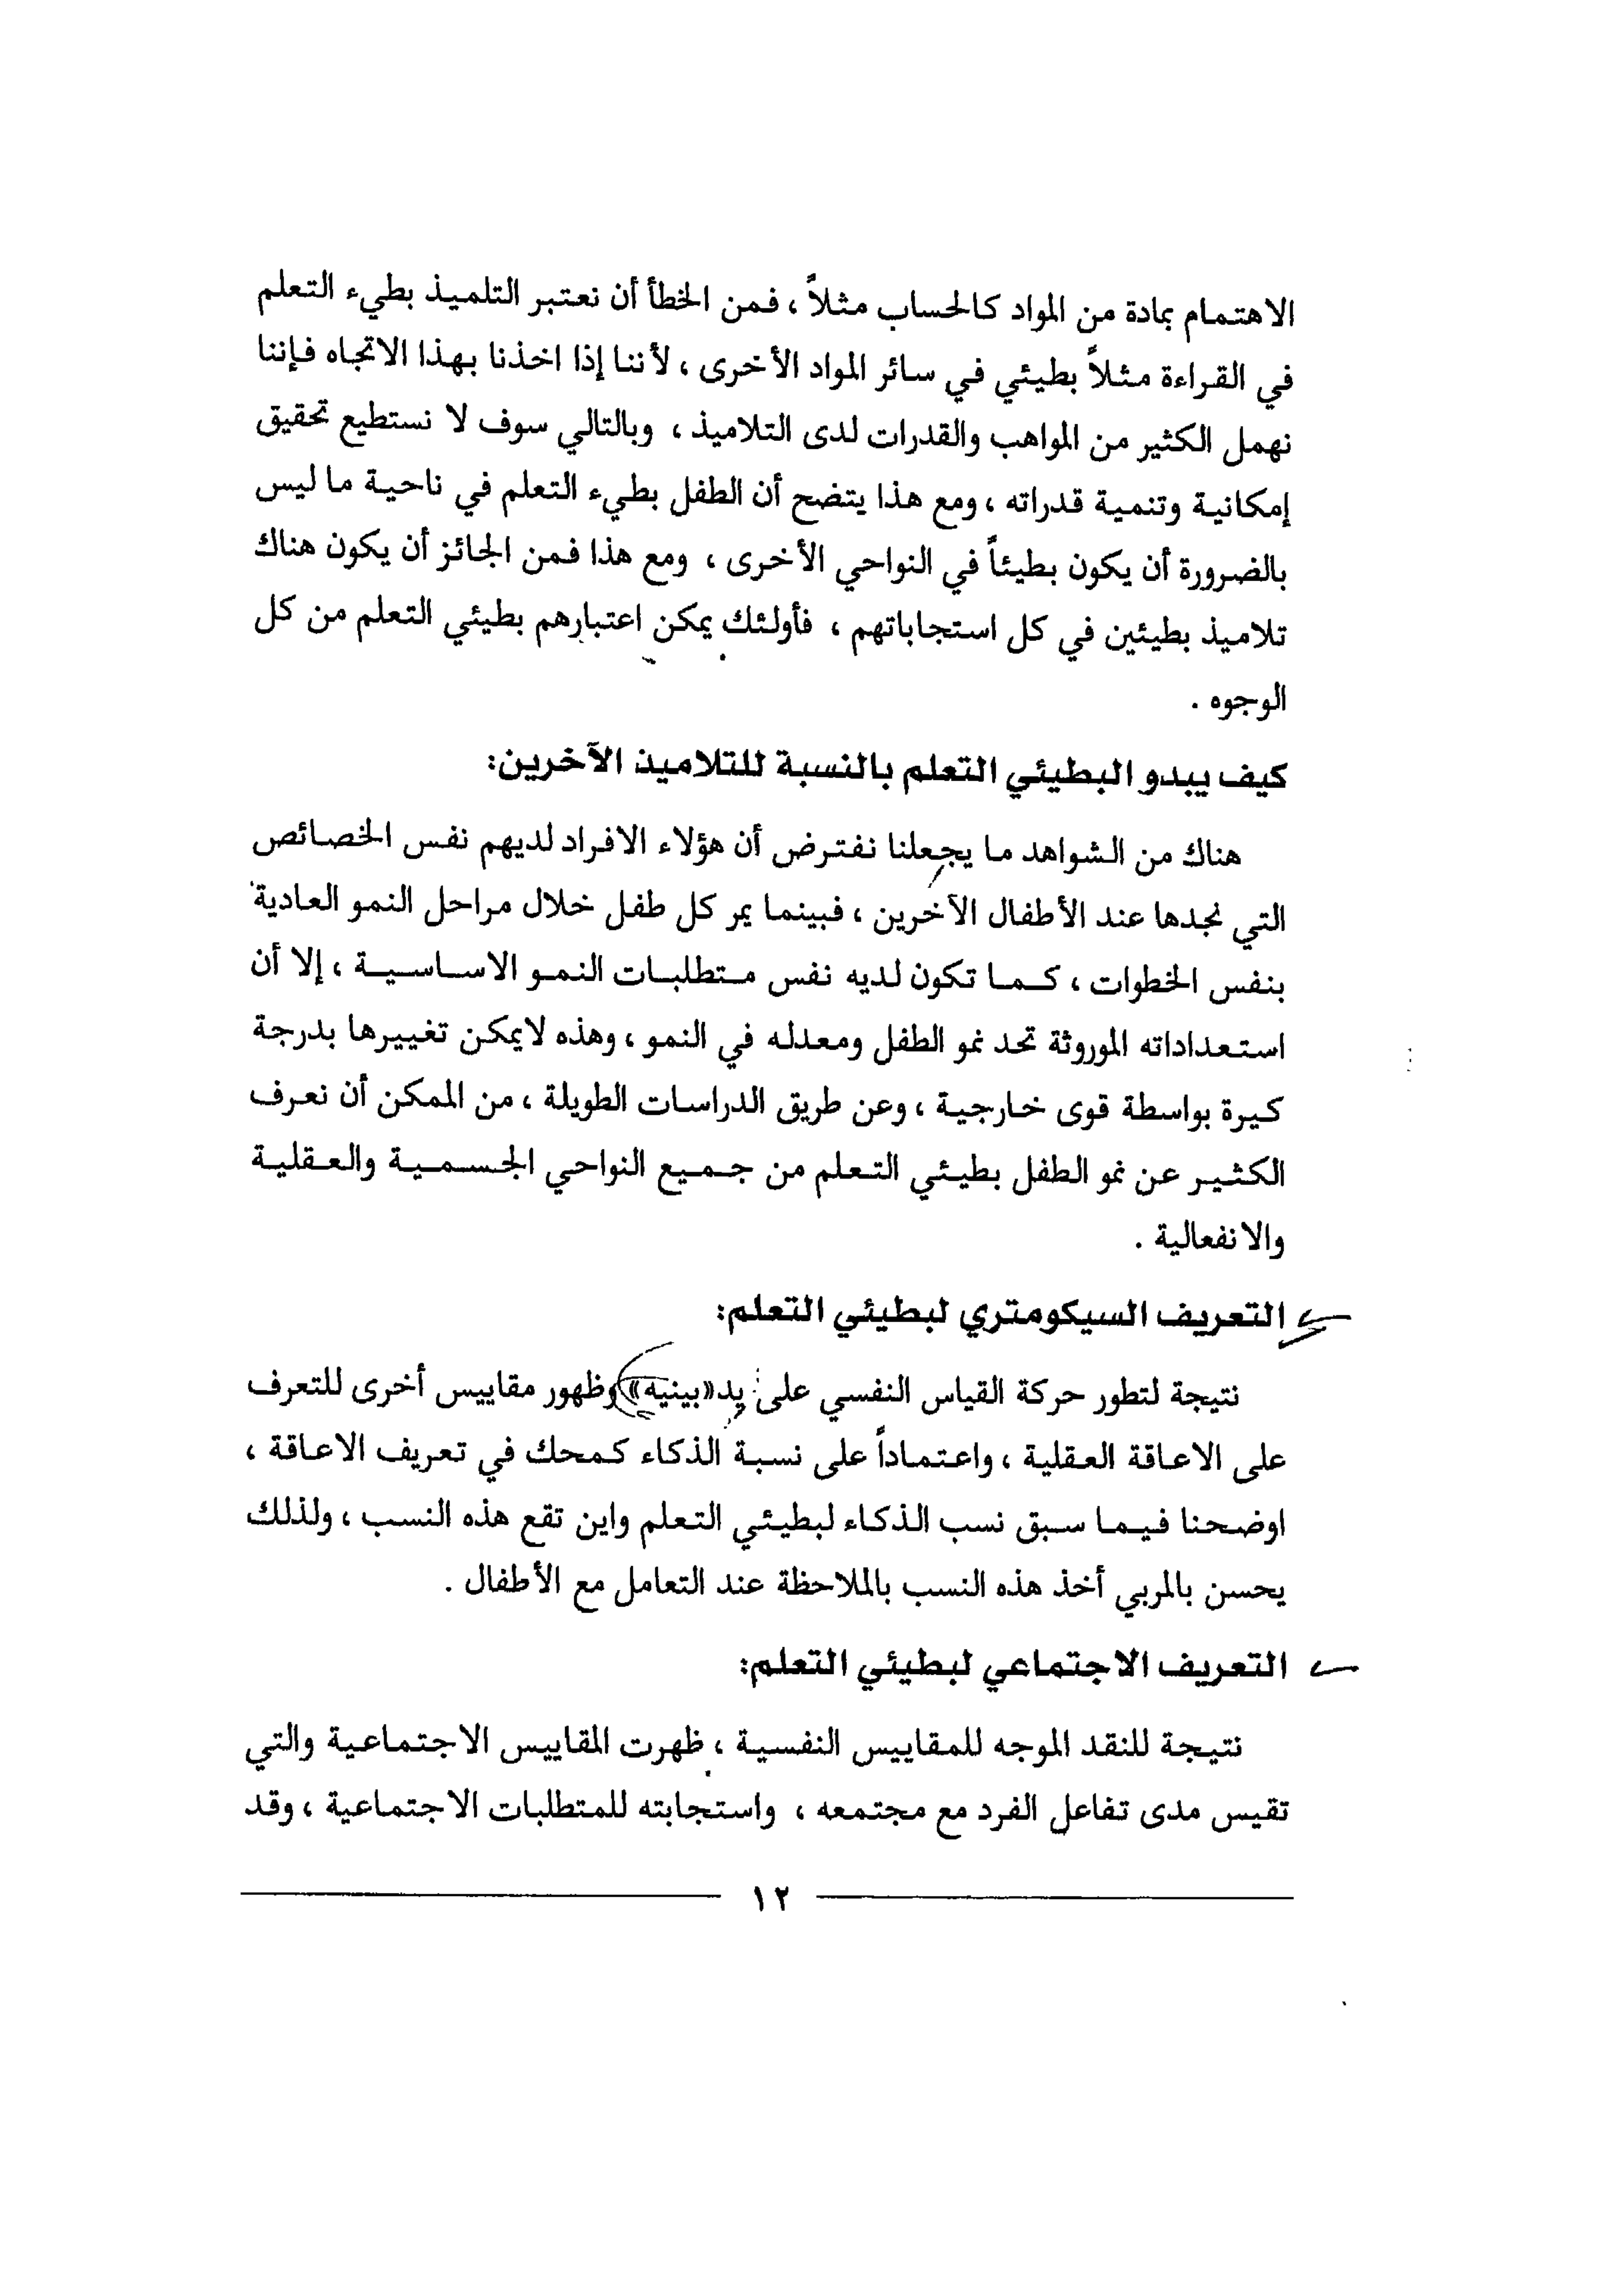 الاهتمام بمادة من المواد كالحساب مثلاً ، فمن الخطأ أن نعتبر التلميذ بطيء التعلم
في القراءة مثلاً بطيئي في سائر المواد الأخرى ، لأننا إذا اخذنا بهذا الاتجاه فإننا
نهمل الكثير من المواهب والقدرات لدى التلاميذ ، وبالتالي سوف لا نستطيع تحقيق
إمكانية وتنمية قدراته ، ومع هذا يتضح أن الطفل بطيء التعلم في ناحية ما ليس
بالضرورة أن يكون بطيئاً في النواحي الأخرى ، ومع هذا فمن الجائز أن يكون هناك
تلاميذ بطيئين في كل استجاباتهم ، فأولئك يمكن اعتبارهم بطيئي التعلم من كل
الوجوه .
كيف يبدو البطيئي التعلم بالنسبة للتلاميذ الآخرين:
هناك من الشواهد ما يجعلنا نفترض أن هؤلاء الافراد لديهم نفس الخصائص
التي نجدها عند الأطفال الآخرين ، فبينما يمر كل طفل خلال مراحل النمو العادية
بنفس الخطوات ، كما تكون لديه نفس متطلبات النمو الاساسية ، إلا أن
استعداداته الموروثة تحد نمو الطفل ومعدله في النمو ، وهذه لايمكن تغييرها بدرجة
كيرة بواسطة قوى خارجية ، وعن طريق الدراسات الطويلة ، من الممكن أن نعرف
الكثير عن نمو الطفل بطيئي التعلم من جميع النواحي الجسمية والعقلية
والانفعالية .
التعريف السيكومتري لبطيئي التعلم:
نتيجة لتطور حركة القياس النفسي على يد «بينيه» وظهور مقاييس أخرى للتعرف
على الاعاقة العقلية ، واعتماداً على نسبة الذكاء كمحك في تعريف الاعاقة ،
اوضحنا فيما سبق نسب الذكاء لبطيئي التعلم واين تقع هذه النسب ، ولذلك
يحسن بالمربي أخذ هذه النسب بالملاحظة عند التعامل مع الأطفال .
التعريف الاجتماعي لبطيئي التعلم:
نتيجة للنقد الموجه للمقاييس النفسية ، ظهرت المقاييس الاجتماعية والتي
تقيس مدى تفاعل الفرد مع مجتمعه ، واستجابته للمتطلبات الاجتماعية ، وقد
١٢